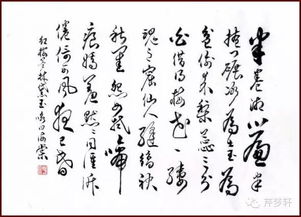 半卷湘帘半
掩门碾冰为土玉为
盆偷来梨蕊三分
白借得梅花一缕
魂月窟仙人缝缟袂
秋闺怨女拭啼
痕娇羞默默同谁诉
倦倚西风夜已昏
红楼梦林黛玉咏白海棠
芹梦轩